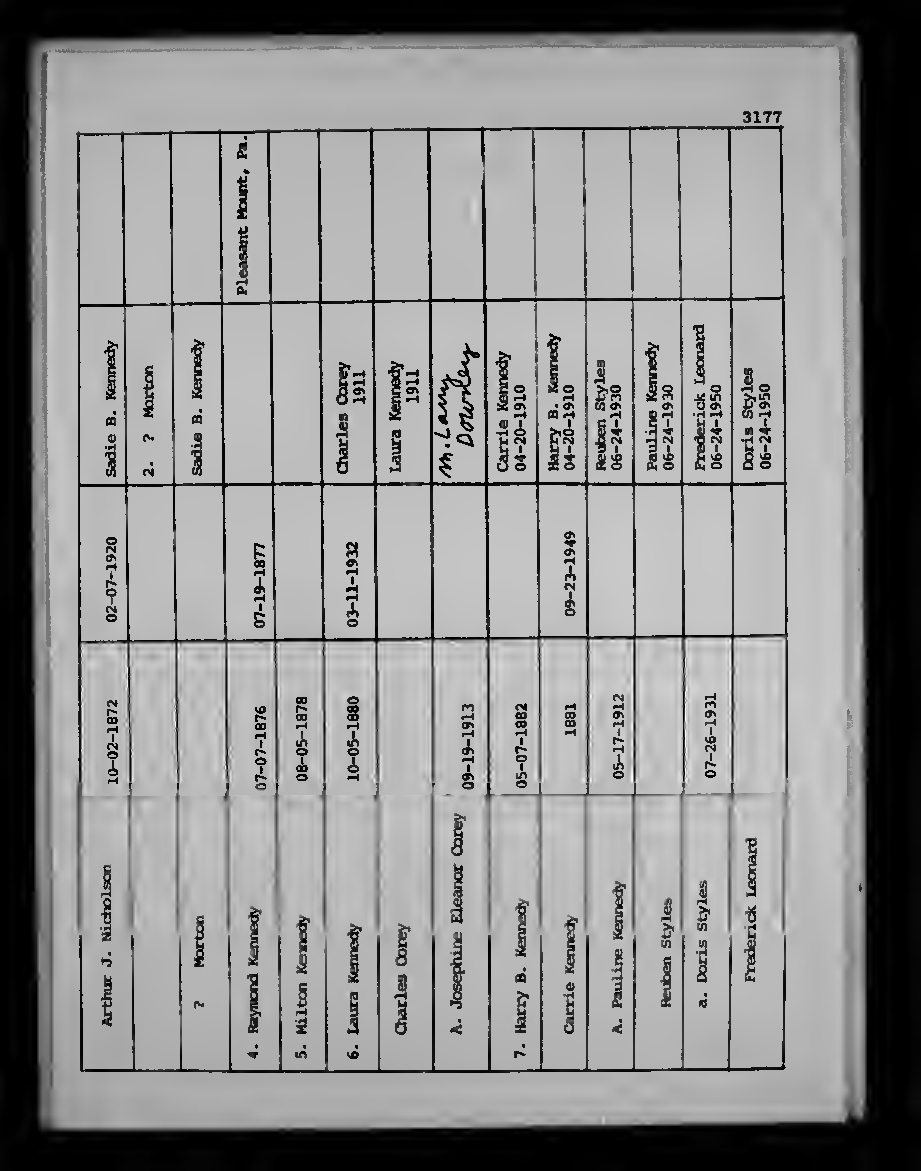 3177
Arthur J. Nicholson 10-02-1872 02-07-1920 Sadie B. Kennedy
2. ? Morton
? Morton Sadie B. Kennedy
4. Raymond Kennedy 07-07-1876 07-19-1877 Pleasant Mount, Pa.
5. Milton Kennedy 08-05-1878
6. Laura Kennedy 10-05-1880 03-11-1932 Charles Corey
1911
Charles Corey Laura Kennedy
1911
A. Josephine Eleanor Corey 09-19-1913 M. Larry
Downley
7. Harry B. Kennedy 05-07-1882 Carrie Kennedy
04-20-1910
Carrie Kennedy 1881 09-23-1949 Harry B. Kennedy
04-20-1910
A. Pauline Kennedy 05-17-1912 Reuben Styles
06-24-1930
Reuben Styles Pauline Kennedy
06-24-1930
a. Doris Styles 07-26-1931 Frederick Leonard
06-24-1950
Frederick Leonard Doris Styles
06-24-1950